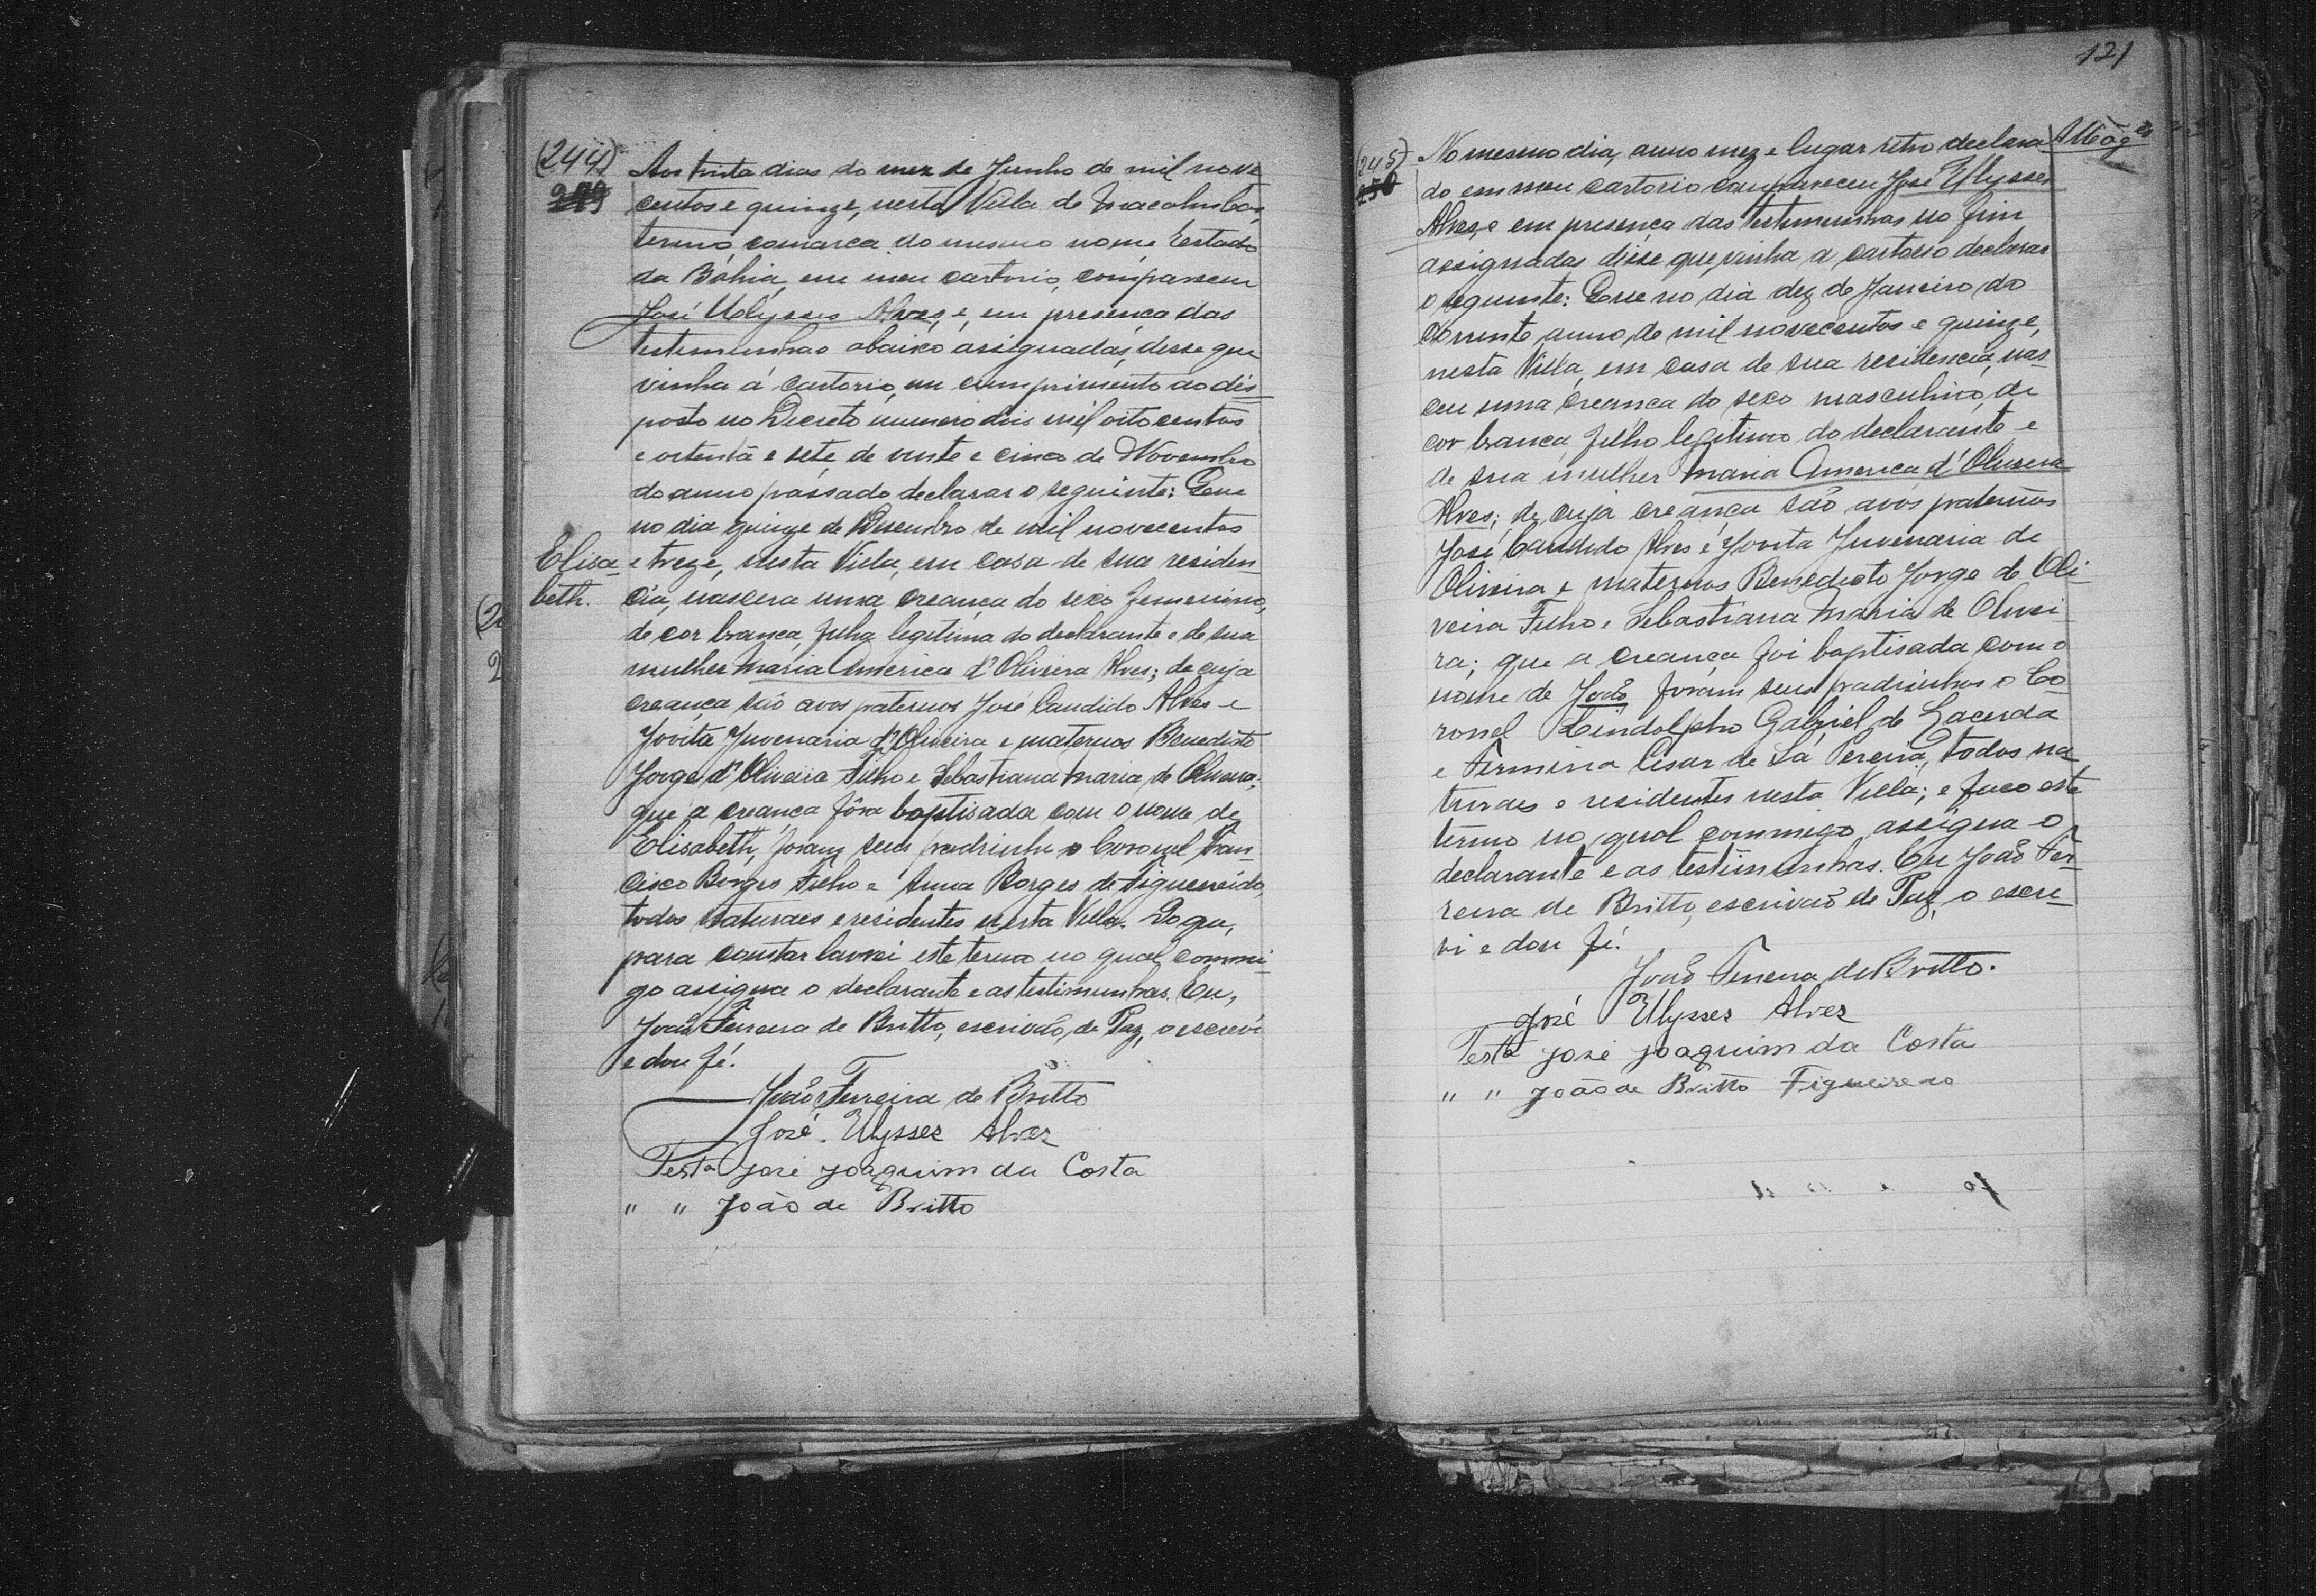 (244)
249
Aos trinta dias do mez de Junho de mil nove
centos e quinze, nesta Villa de Macahubas
termo, comarca do mesmo nome Estado
da Bahia, em meu cartorio, compareceu
José Ulysses Alves, e, em presença das
testimunhas abaixo assignadas, disse que
vinha á cartorio, em cumprimento ao dis-
posto no Decreto numero dois mil oitocentos
e oitenta e sete de vinte e cinco de Novembro
do anno passado declarar o seguinte: Que
no dia quinze de Desembro de mil novecentos
Elisa-
beth.
e treze, nesta Villa, em casa de sua residen-
cia, nascera uma creança do sexo femenino,
de cor branca, filha legitima do declarante e de sua
mulher Maria America d'Oliveira Alves; de cuja
creança são avos paternos José Candido Alves e
Jovita Juvenaria d'Oliveira e maternos Benedicto
Jorge d'Oliveira Filho e Sebastiana Maria de Oliveira;
que a creança fôra baptisada com o nome de
Elisabeth, foram seus padrinhos o Coronel Fran-
cisco Borges Filho e Anna Borges de Figueireido,
todos naturaes e residentes nesta Villa. Do que,
para constar lavrei este termo no qual commi-
go assigna o declarante e as testimunhas. Eu,
João Ferreira de Britto, escrivão de Paz, o escrevi
e dou fé.
João Ferreira de Britto
José Ulysses Alves
Testa José Joaquim da Costa
" " João de Britto
121
(245)
250
No mesmo dia, anno mez e lugar retro declara
do em meu cartorio compareceu José Ulysses
Alves, e em presença das testemunhas no fim
assignadas disse que vinha a cartorio declarar
o seguinte: Que no dia dez de Janeiro do
corrente anno de mil novecentos e quinze,
nesta Villa, em casa de sua residencia, nas-
ceu uma creança do sexo masculino, de
cor branca, filho legitimo do declarante e
de sua mulher Maria America d'Oliveira
Alves; de cuja creança são avós paternos
José Candido Alves e Jovita Juvenaria de
Oliveira e maternos Benedicto Jorge de Oli-
veira Filho e Sebastiana Maria de Olivei
ra; que a creança foi baptisada com o
nome de João foram seus padrinhos o Co-
ronel Lindolpho Gabriel de Lacerda
e Firmina Cesar de Sá Pereira, todos na
turaes e residentes nesta Villa; e faco este
termo no qual commigo assigna o
declarante e as testimunhas. Eu João Fer-
reira de Britto, escrivão de Paz, o escre-
vi e dou fé.
João Ferreira de Britto.
José Ulysses Alves
Testa José Joaquim da Costa
" " João de Britto Figueiredo